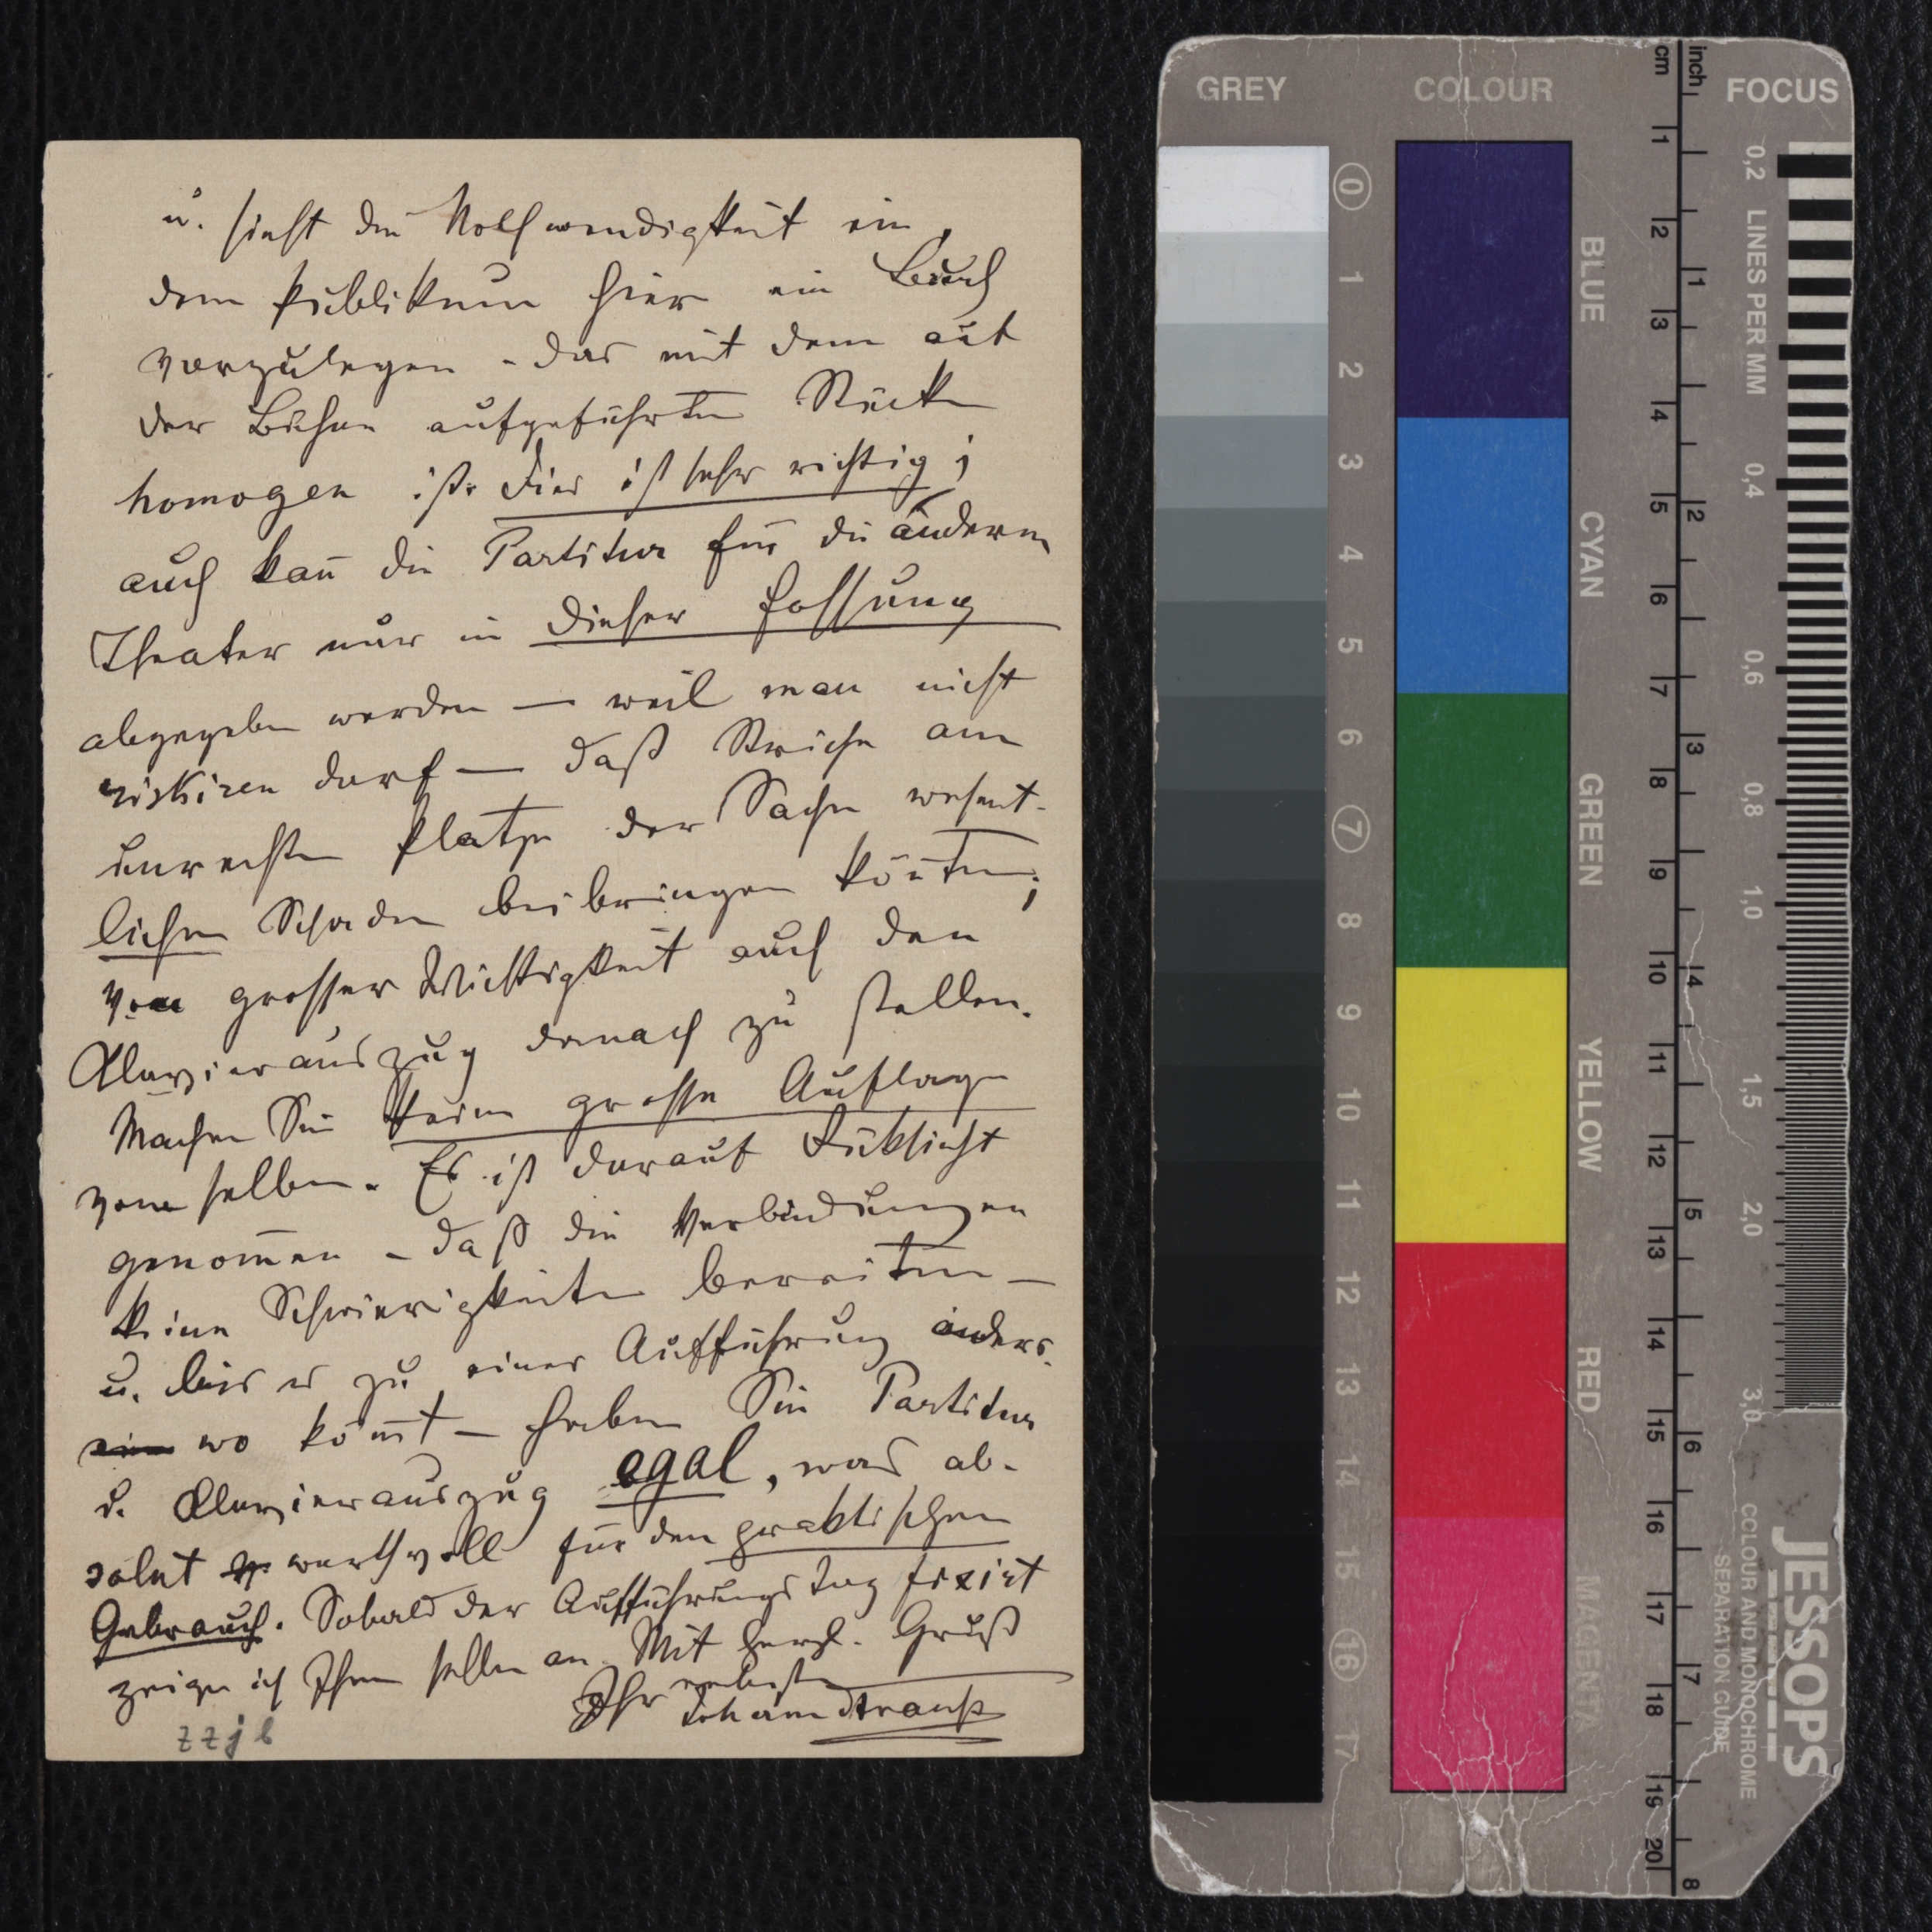 u. sieht die Nothwendigkeit ein,
dem Publikum hier ein Buch
vorzulegen - das mit dem auf
der Bühne aufgeführten Stücke
homogen ist. Dies ist sehr richtig;
auch kan̅ die Partitur für die andern
Theater nur in dieser Fassung
abgegeben werden — weil man nicht
riskiren darf — daß Striche am
unrechten Platze der Sache wesent-
lichen Schaden beibringen kön̅ten;
von grosser Wichtigkeit auch den
Klavierauszug darnach zu stellen.
Machen Sie keine grosse Auflage
von selben. Es ist darauf Rüksicht
genom̅en - daß die Verbindungen
keine Schwierigkeiten bereiten —
u. bis es zu einer Aufführung anders-
wo kom̅t — haben Sie Partitur
u. Klavierauszug egal, was ab-
solut werthvoll für den praktischen
Gebrauch. Sobald der Aufführungstag fixirt
zeige ich Ihnen selben an. Mit herzl. Gruß
Ihr
Johann Strauß
zzjb
GREY
COLOUR
cm
inch
FOCUS
0 1 2 3 4 5 6 7 8 9 10 11 12 13 14 15 16 17
BLUE
CYAN
GREEN
YELLOW
RED
MAGENTA
1 2 3 4 5 6 7 8 9 10 11 12 13 14 15 16 17 18 19 20
1 2 3 4 5 6 7 8
0,2 LINES PER MM 0,4 0,6 0,8 1,0 1,5 2,0 3,0
JESSOPS
COLOUR AND MONOCHROME
SEPARATION GUIDE